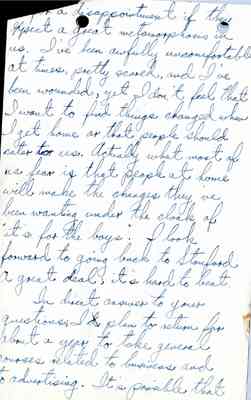 a disappointment if they
expect a great metamorphosis in
us. I've been awfully uncomfortable
at times, pretty scared, and I've
been wounded, yet I don't feel that
I want to find things changed when
I get home or that people should
cater to us. Actually what most of
us fear is that people at home
will make the changes they've
been wanting under the cloak of
"it's for the boys". I look
forward to going back to Stanford
a great deal; it's hard to beat.
In direct answer to your
questions: I plan to return for
about a year to take general
courses related to business and
to advertising. It is possible that